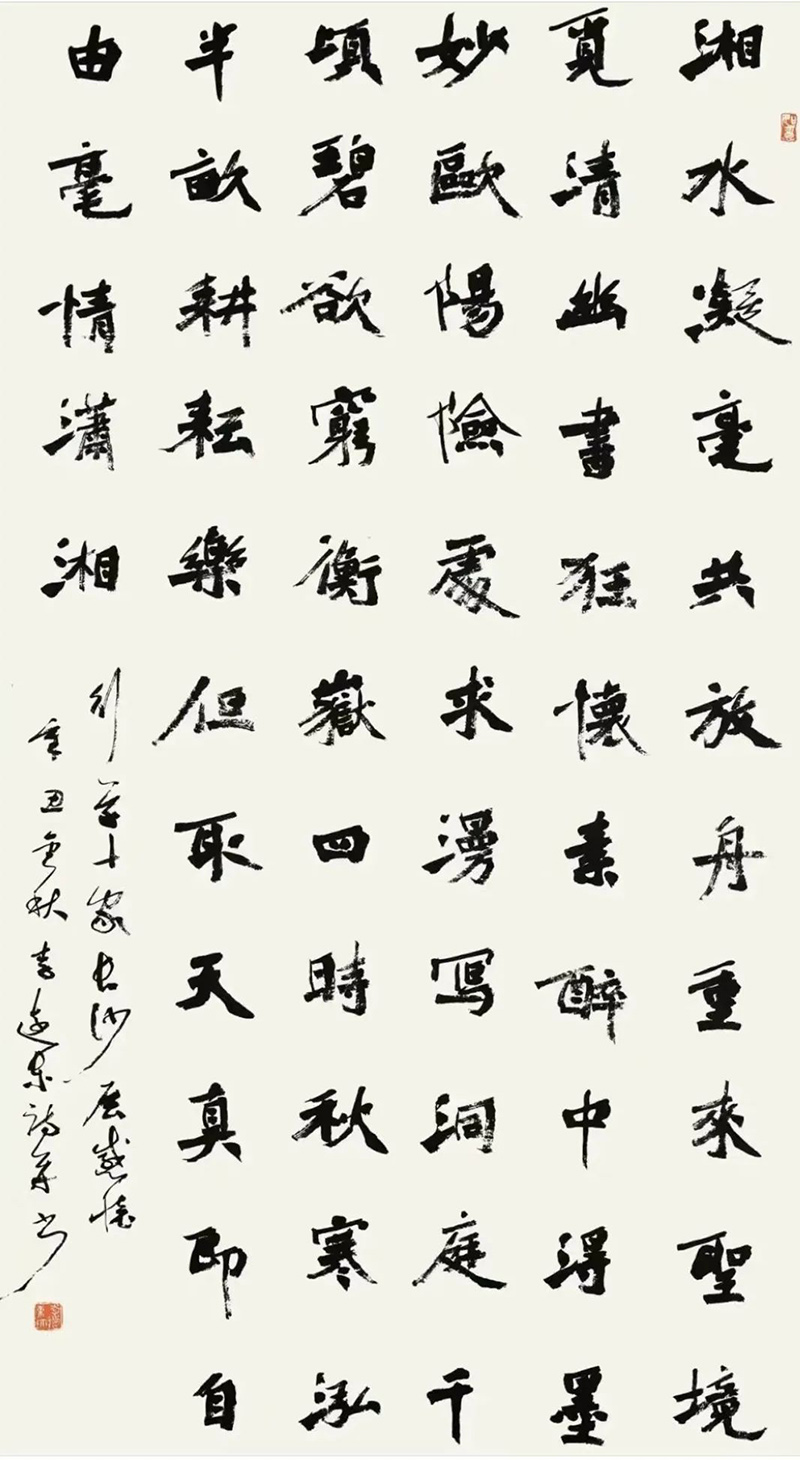 湘水凝毫共放舟重來聖境
覓清幽書狂懷素醉中得墨
妙歐陽險處求漫写洞庭千
頃碧欲窮衡嶽四時秋寒泓
半畝耕耘樂但取天真即自
由毫情瀟湘
行草十家长沙展感懷
辛丑金秋李遠东詩并书